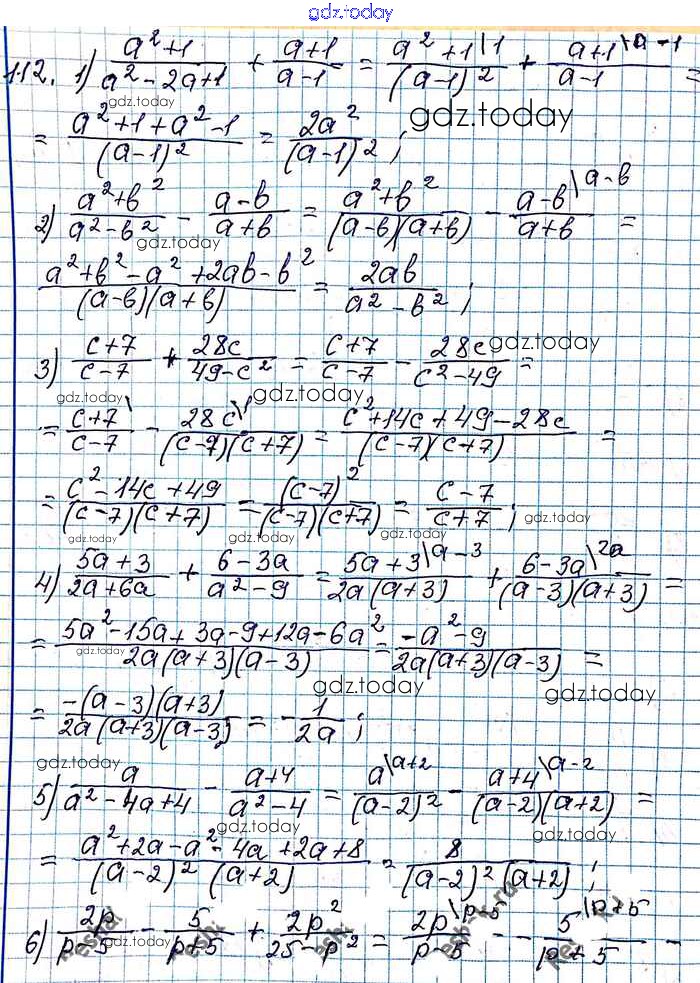 gdz.today
112. 1) (a²+1)/(a²-2a+1) + (a+1)/(a-1) = (a²+1\1)/((a-1)²) + (a+1\a-1)/(a-1) =
gdz.today gdz.today
= (a²+1+a²-1)/((a-1)²) = 2a²/((a-1)²) ;
2) (a²+b²)/(a²-b²) - (a-b)/(a+b) = (a²+b²)/((a-b)(a+b)) - (a-b\a-b)/(a+b) =
gdz.today
(a²+b²-a²+2ab-b²)/((a-b)(a+b)) = 2ab/(a²-b²) ;
3) (c+7)/(c-7) + 28c/(49-c²) = (c+7)/(c-7) - 28c/(c²-49) =
gdz.today
gdz.today gdz.today
= (c+7\)/(c-7) - (28c\1)/((c-7)(c+7)) = (c²+14c+49-28c)/((c-7)(c+7)) =
= (c²-14c+49)/((c-7)(c+7)) = (c-7)²/((c-7)(c+7)) = (c-7)/(c+7) ;
gdz.today
gdz.today gdz.today
4) (5a+3)/(2a+6a) + (6-3a)/(a²-9) = (5a+3\a-3)/(2a(a+3)) + (6-3a\2a)/((a-3)(a+3)) =
= (5a²-15a+3a-9+12a-6a²)/(2a(a+3)(a-3)) = (-a²-9)/(2a(a+3)(a-3)) =
gdz.today
gdz.today gdz.today
= (-(a-3)(a+3))/(2a(a+3)(a-3)) = -1/(2a) ;
gdz.today
5) a/(a²-4a+4) - (a+4)/(a²-4) = (a\a+2)/((a-2)²) - (a+4\a-2)/((a-2)(a+2)) =
gdz.today gdz.today
= (a²+2a-a²-4a+2a+8)/((a-2)²(a+2)) = 8/((a-2)²(a+2)) ;
6) 2p/(p-5) - 5/(p+5) + 2p²/(25-p²) = (2p\p-5)/(p-5) - (5\p+5)/(p+5) -